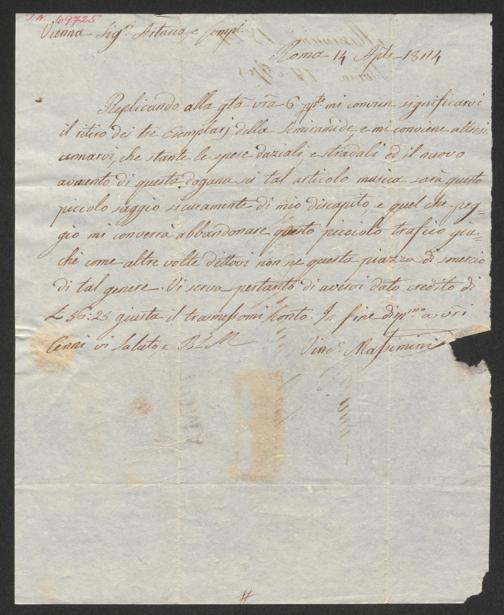 I.N. 49725
Vienna Sigr. Artaria e Comp.
Roma 14 Aple 1824
Replicando alla gta vra 6 convien significarvi
il ritiro dei tre Esemplarj della Semiramide e mi conviene altresi
, che stante le spese daziali, e stradali ed il nuovo
aumento di questa dogana su tal articolo musica sarà questo
piccolo saggio sicuramente di mio discapito, e quel che peg=
gio mi converrà abbandonare questo picciolo trafico giac=
chè come altre volte dettovi non ne questa piazza di smercio
di tal genere. Vi serva pertanto di avervi dato credito di
36:25 giusta il trasmessomi Conto. In fine a vri
Cenni vi Saluto e
Vinc. Massimini
#